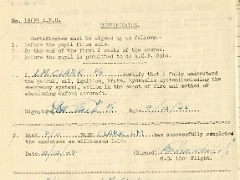 No. 18(P) A.F.U.
CERTIFICATES.
Certificates must be signed up as follows:-
1. Before the pupil flies solo.
2. By the end of the first 2 weeks of the course.
3. Before the pupil is permitted to do N.C.F. Solo.
1. I CLARK certify that I fully understand
the petrol, oil, ignition, brake, hydraulic systems(including the
emergency system), action in the event of fire and method of
abandoning Oxford aircraft.
Signature Date
2. RANK NAME CLARK has successfully completed
the exercises as outlined below.
Date (Signed)
O.C. Flight.